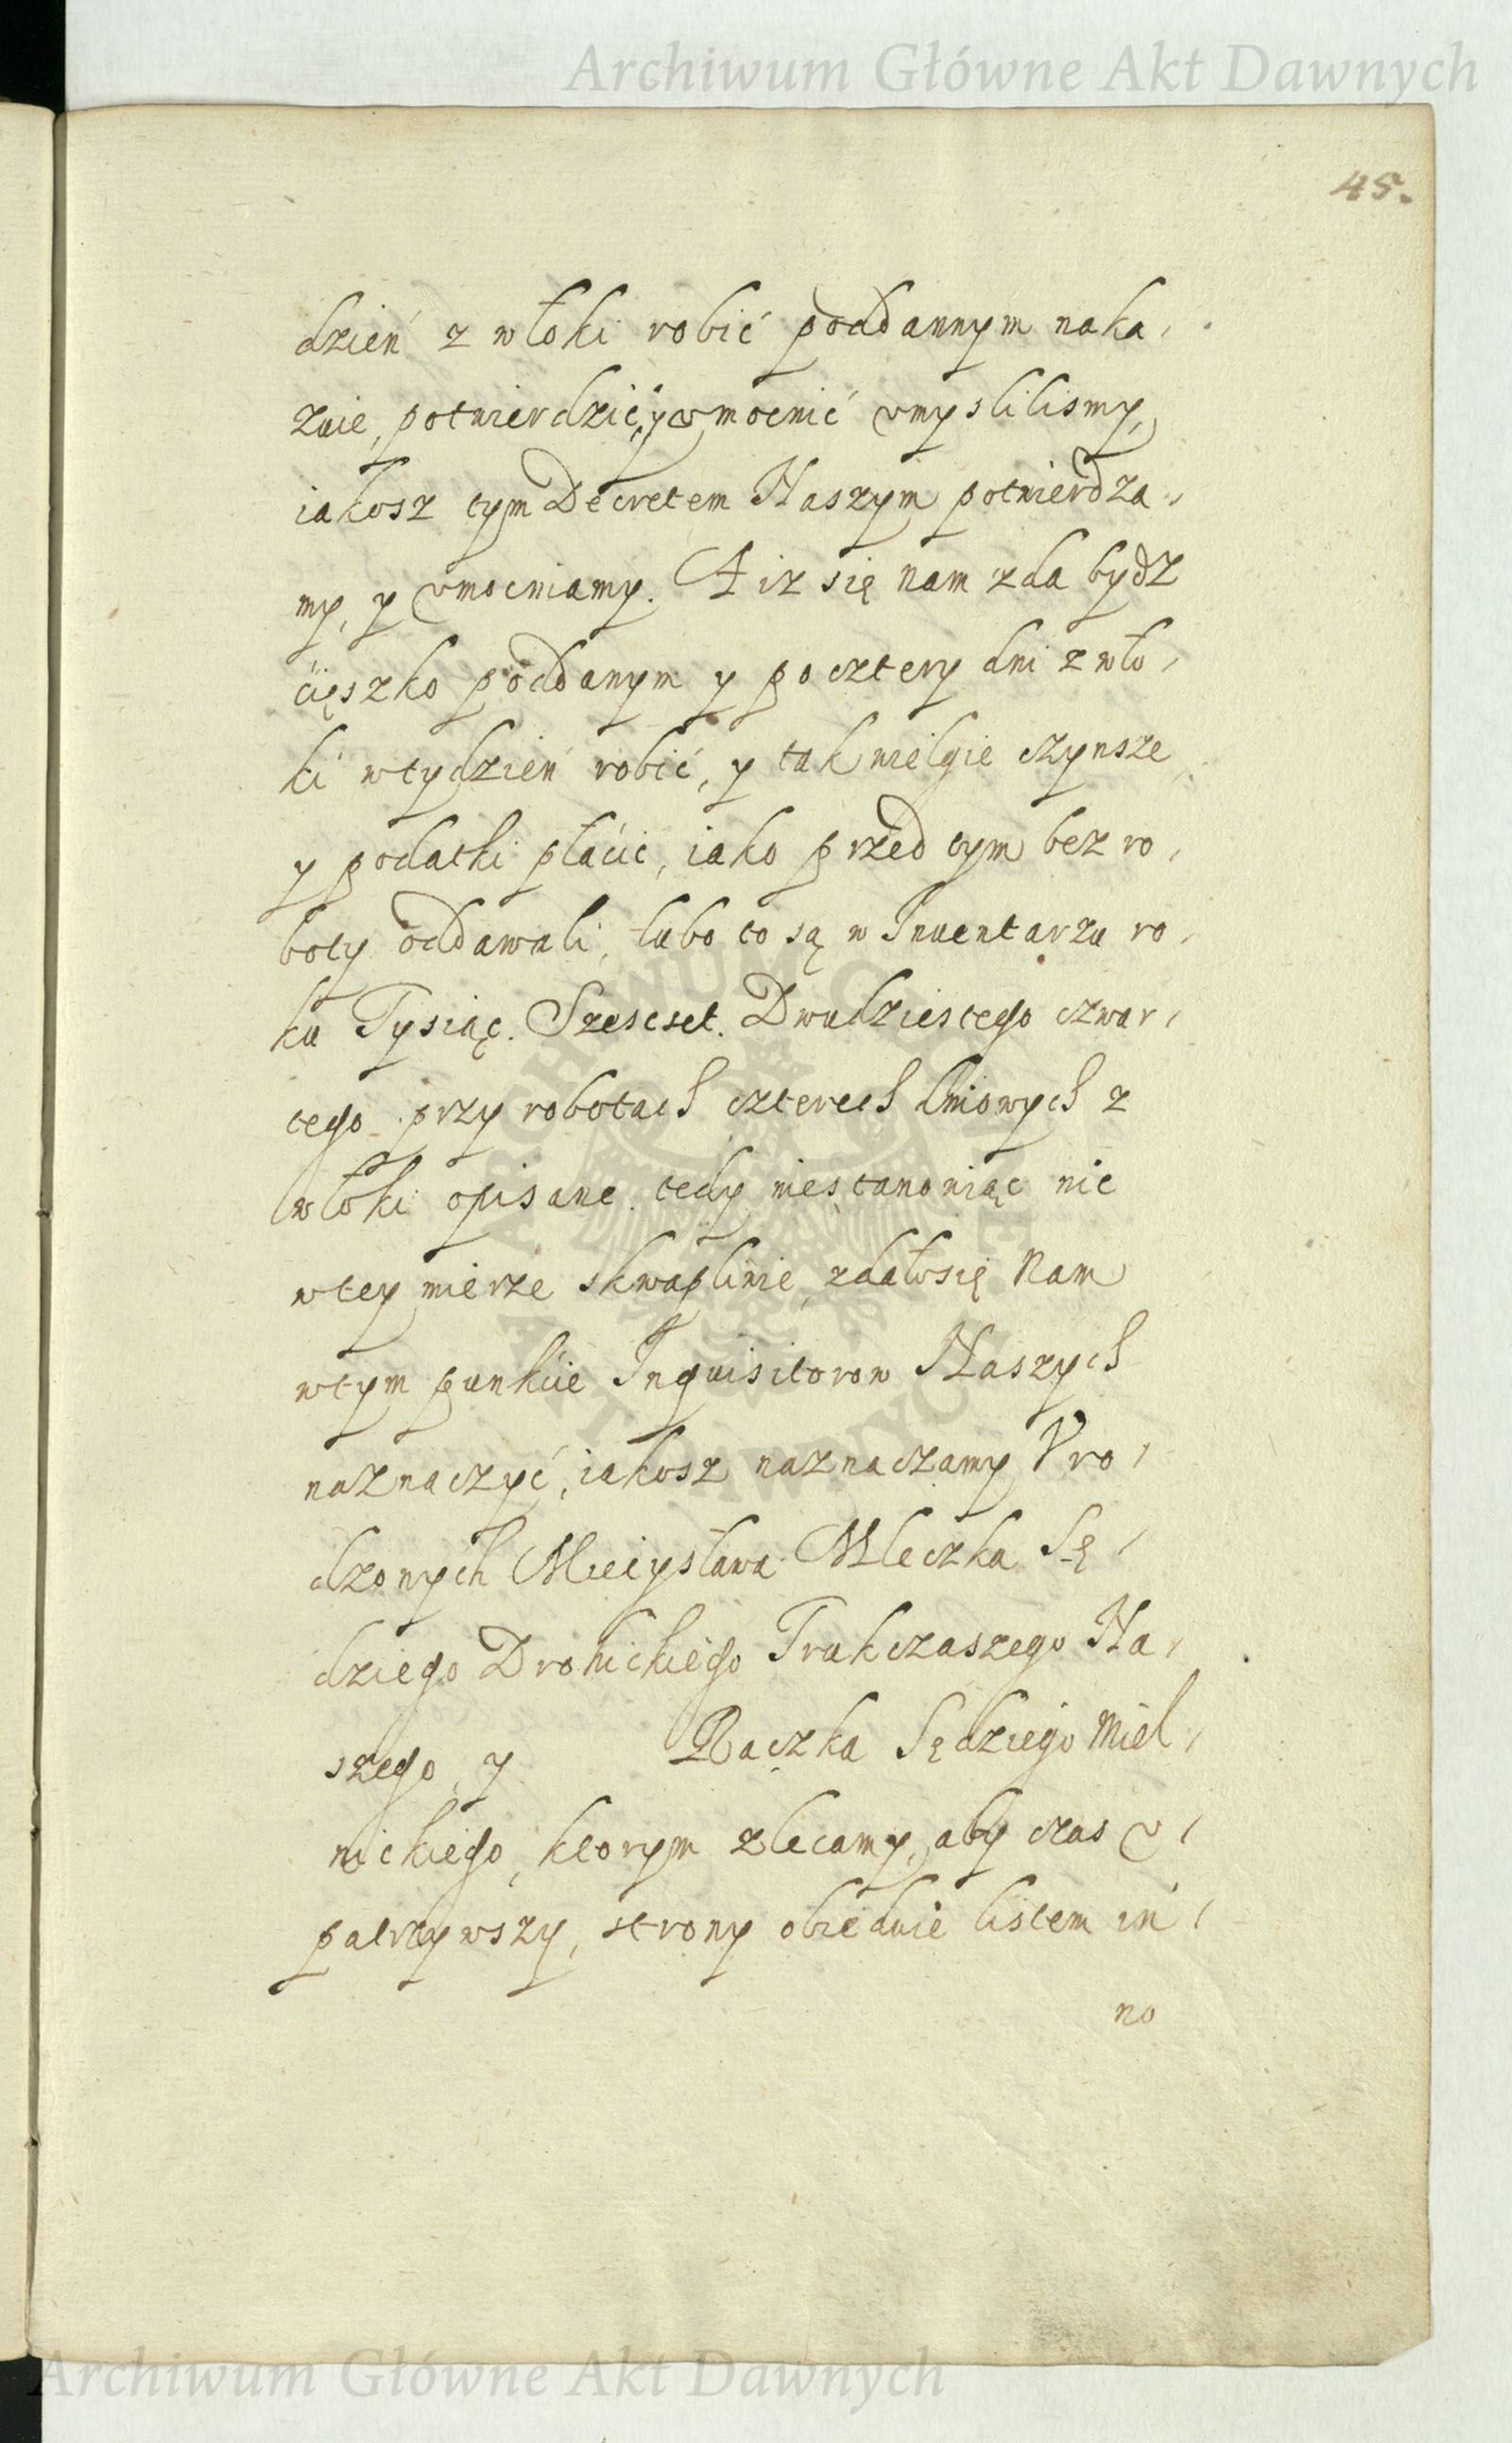 Archiwum Główne Akt Dawnych
45.
dzień z włoki robić poddannym naka,
zuie, potwierdzić, y vmocnić vmyslilismy,
iakosz tym Decretem Naszym potwierdza,
my, y vmocniamy. A iz się nam zda bydz
cięszko poddanym y po cztery dni z wło,
ki w tydzień robić, y tak wielgie czynsze
y podatki płacić, iako przed tym bez ro,
boty oddawali, lubo to są w Inuentarzu ro,
ku Tysiąc. Szescset. Dwudziestego czwar,
tego przy robotach czterech dniowych z
włoki opisane. tedy niestanowiąc nic
w tey mierze skwapliwie, zdało się Nam
w tym punkcie Inquisitorow Naszych
naznaczyć, iakosz naznaczamy Vro,
dzonych Mieczysława Mleczka Sę,
dziego Drohickiego Trukczaszego Na,
szego, y Raczka Sędziego Miel,
nickiego, ktorym zlecamy, aby czas v,
patrzywszy, strony obiedwie listem in,
no
ARCHIWUM GŁÓWNE AKT DAWNYCH
Archiwum Główne Akt Dawnych